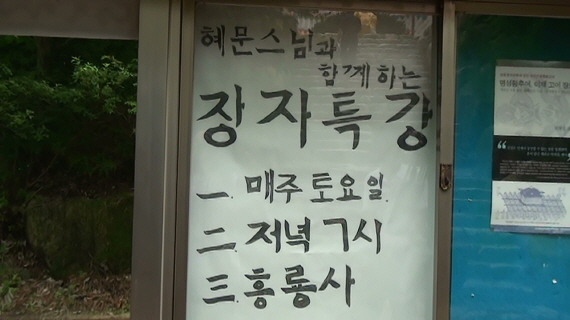 혜문스님과
함께하는
장자특강
一. 매주 토요일.
二. 저녁 7시
三. 흥룡사